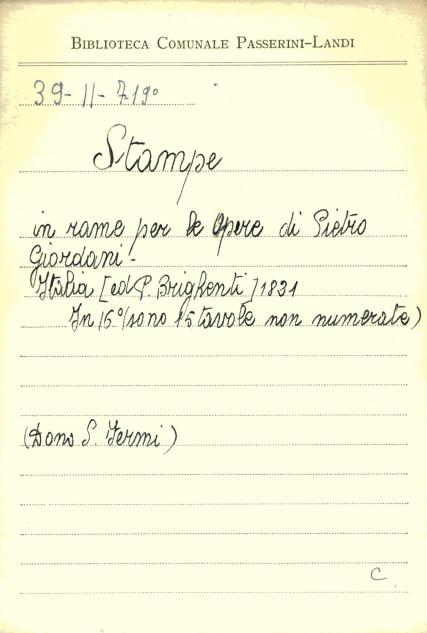 BIBLIOTECA COMUNALE PASSERINI-LANDI
39-II-719°
Stampe
in rame per le Opere di Pietro
Giordani-
Italia [ed P. Brighenti] 1831
In 16° (sono 15 tavole non numerate)
(Dono S. Fermi)
C